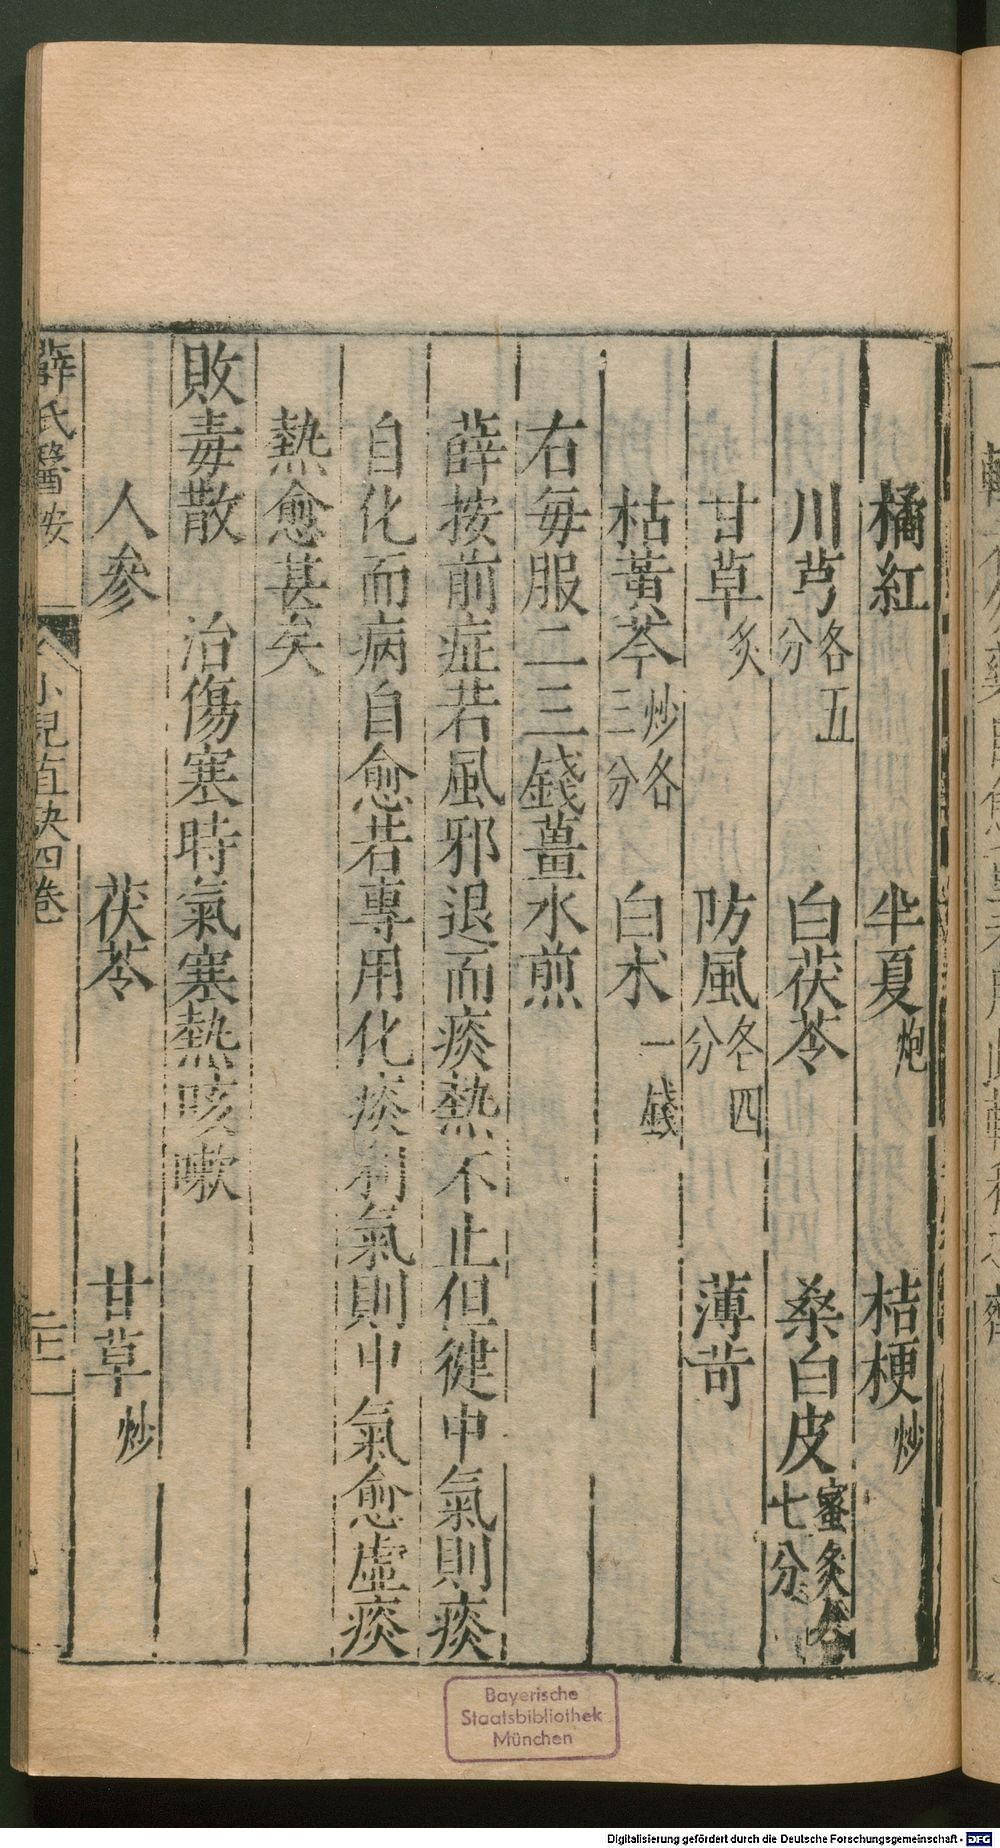 橘紅 半夏炮 桔梗炒
川芎各五分 白茯苓 桑白皮蜜炙各七分
甘草炙 防風各四分 薄苛
枯黃芩炒各三分 白朮一錢
右每服二三錢薑水煎
薛按前症若風邪退而痰熱不止但健中氣則痰
自化而病自愈若專用化痰利氣則中氣愈虛痰
熱愈甚矣
敗毒散 治傷寒時氣寒熱咳嗽
人參 茯苓 甘草炒
薛氏醫按 小兒直訣四卷 二十一
Bayerische
Staatsbibliothek
München
Digitalisierung gefördert durch die Deutsche Forschungsgemeinschaft - DFG